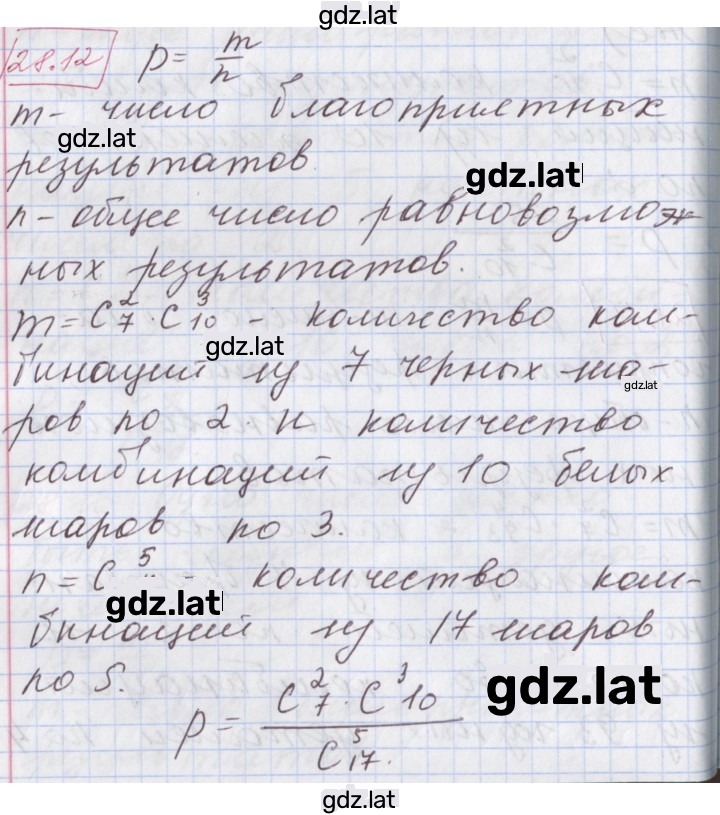 gdz.lat
28.12 p = m/n
m - число благоприятных
gdz.lat
результатов
gdz.lat
n - общее число равновозмож
ных результатов.
m = C₇² · C₁₀³ - количество ком-
gdz.lat
бинаций из 7 черных ша-
gdz.lat
ров по 2 и количество
комбинаций из 10 белых
шаров по 3.
n = C⁵ количество ком-
gdz.lat
бинаций из 17 шаров
по 5.
gdz.lat
p = C₇² · C₁₀³ / C₁₇⁵.
gdz.lat